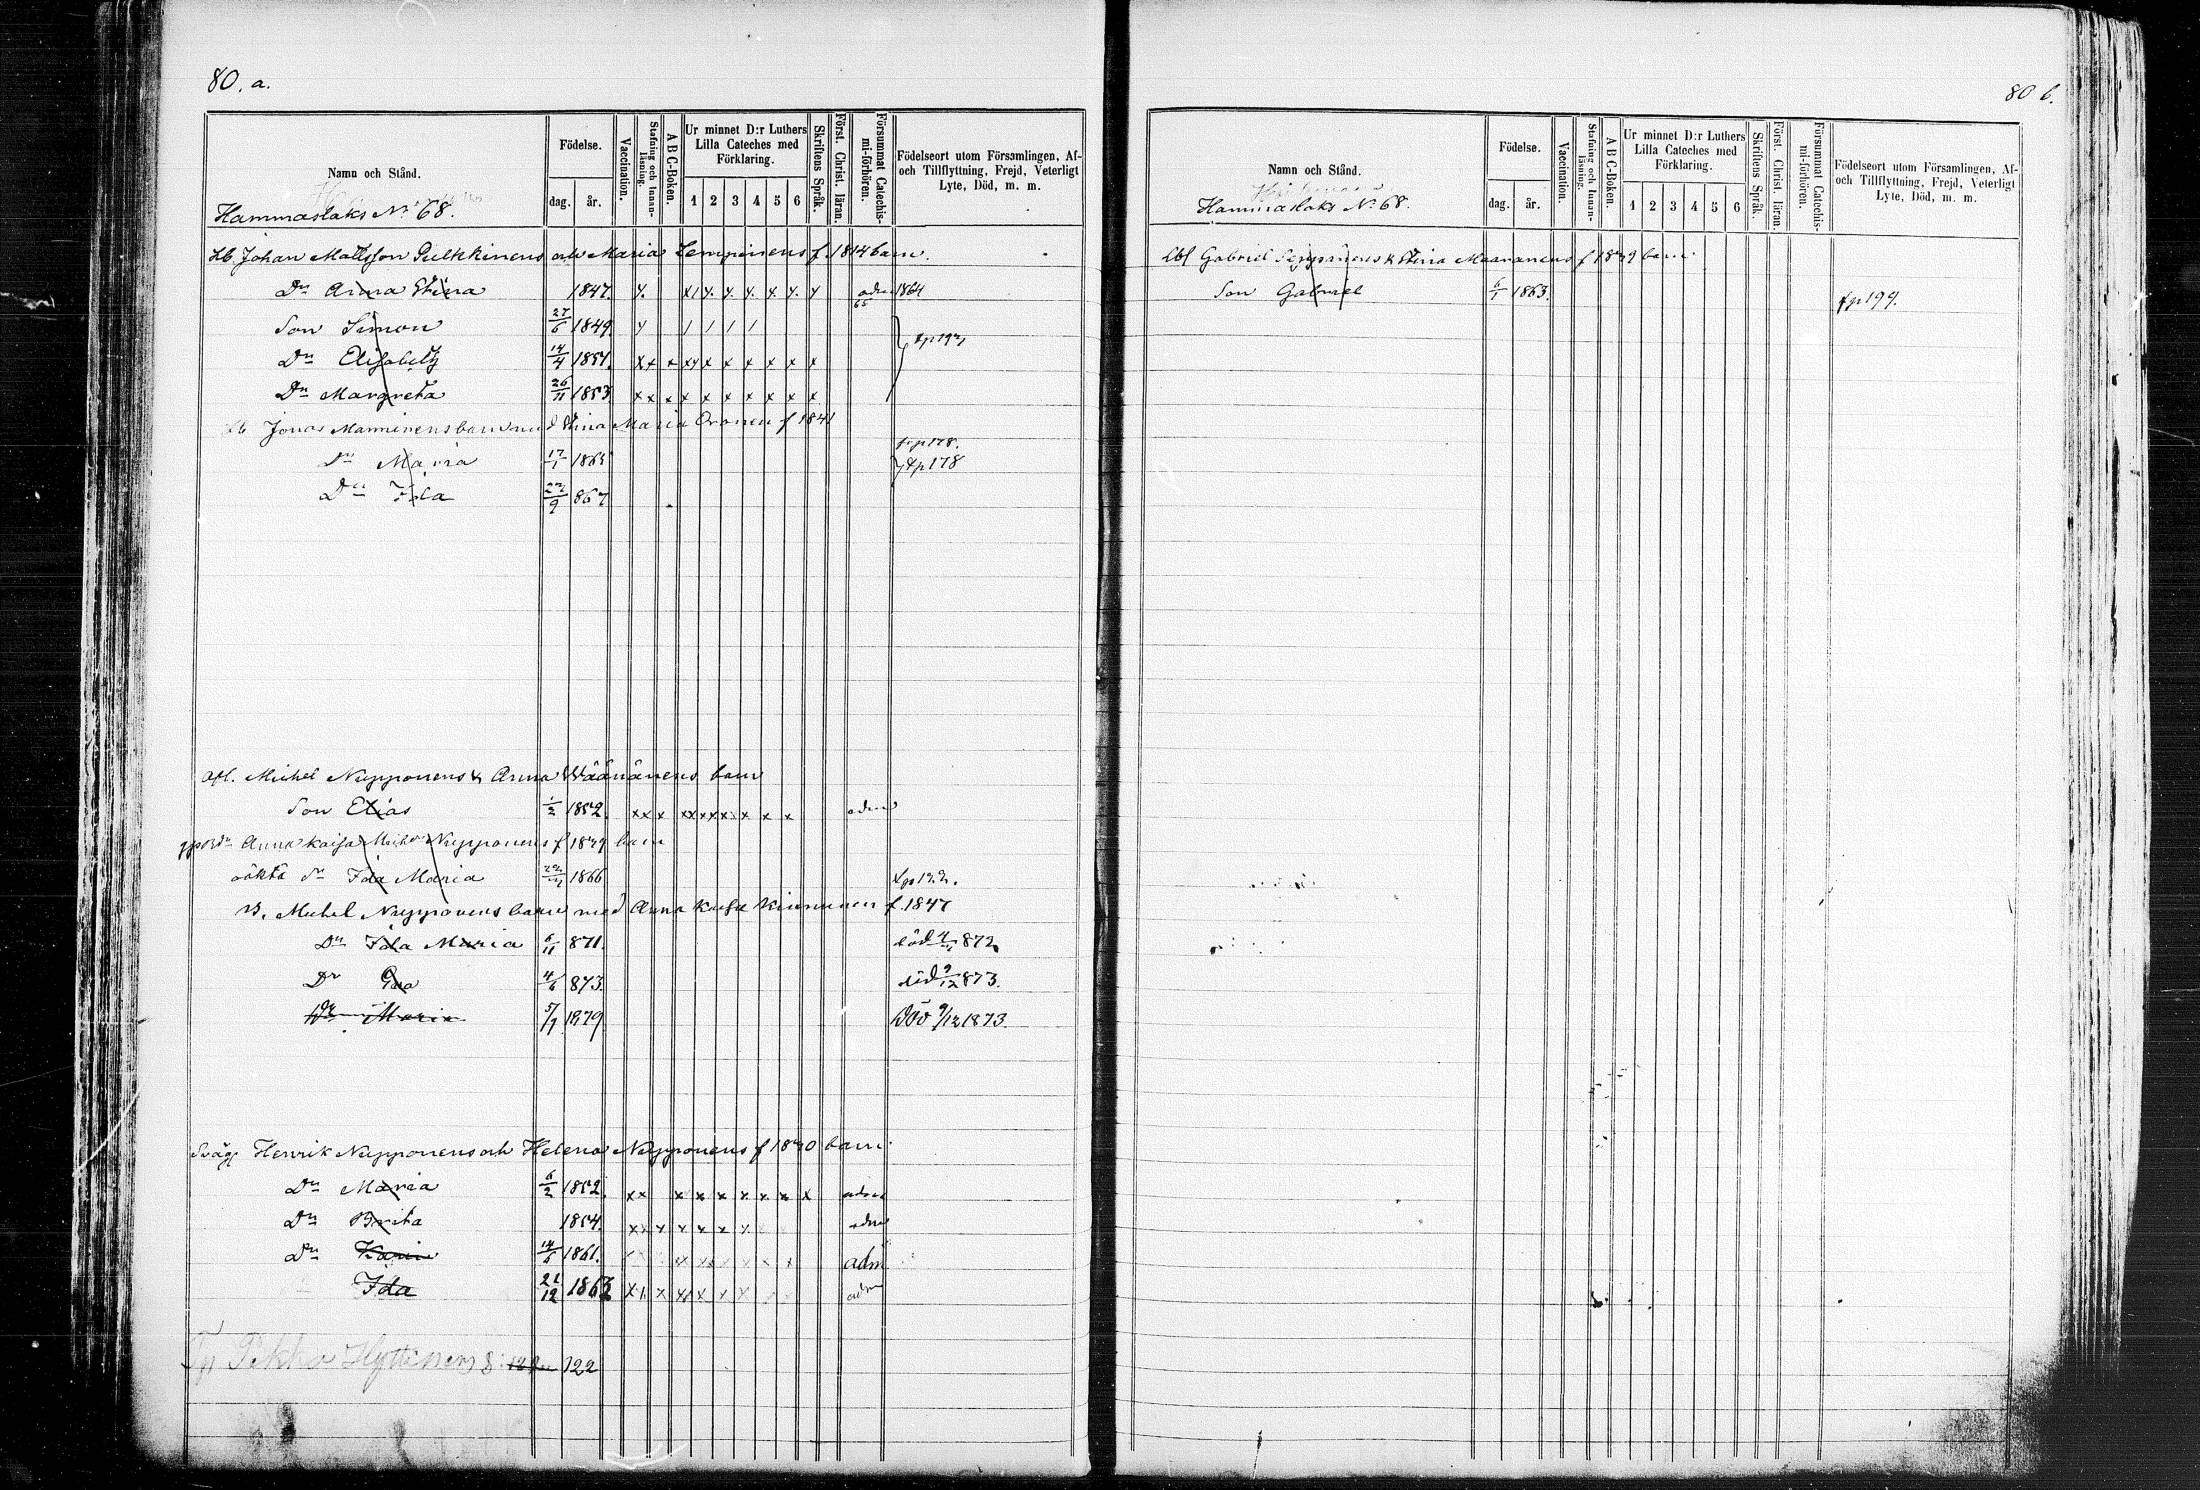 80. a.
Namn och Stånd.
Födelse.
dag. år.
Vaccination.
Stafning och Innanläsning.
A B C-Boken.
Ur minnet D:r Luthers Lilla Cateches med Förklaring.
1 2 3 4 5 6
Skriftens Språk.
Först. Christ. läran.
Försummat Catechismi-förhören.
Födelseort utom Församlingen, Af- och Tillflyttning, Frejd, Veterligt Lyte, Död, m. m.
Hammaslaks No 68.
Lb. Johan Mattsson Pulkkinens och Maria Lempinens f. 1814 barn.
Dr Anna Stina 1847. adm 65 1864
Son Simon 27/6 1849
Dr Elisabeth 14/4 1851.
Dr Margreta 26/11 1853
Lb Jonas Manninens barn med Stina Maria Oronen f 1841
tp 178.
Dr Maria 17/1 1865 tp 178
Dr Ida 22/9 867
Michel Nupponens & Anna Wäänänens barn
Son Elias 1/2 1852. adm
Anna Kaisa Nupponens f 1839 barn
oäkta dr Ida Maria 1866 tp 122.
B. Michel Nupponens barn med Anna Kaisa Kinnunen f. 1847
Dr Ida Maria 6/11 871. död 872
Dr Eva 4/6 873. död 9/12 873.
Dr Maria 5/7 1879. Död 9/12 1873.
Svåg. Henrik Nupponens och Helena Nupponens f 1830 barn
Dr Maria 6/2 1852. adm
Dr Brita 1854. adm
Dr Karin 14/6 1861. adm
Ida 21/12 1863 adm
Pekka Hyttinens 122
80 b.
Namn och Stånd.
Födelse.
dag. år.
Vaccination.
Stafning och Innanläsning.
A B C-Boken.
Ur minnet D:r Luthers Lilla Cateches med Förklaring.
1 2 3 4 5 6
Skriftens Språk.
Först. Christ. läran.
Försummat Catechismi-förhören.
Födelseort utom Församlingen, Af- och Tillflyttning, Frejd, Veterligt Lyte, Död, m. m.
Hammaslaks No 68.
Gabriel Seppänens & Stina Maaranens f 1839 barn
Son Gabriel 6/1 1863. tp 199.